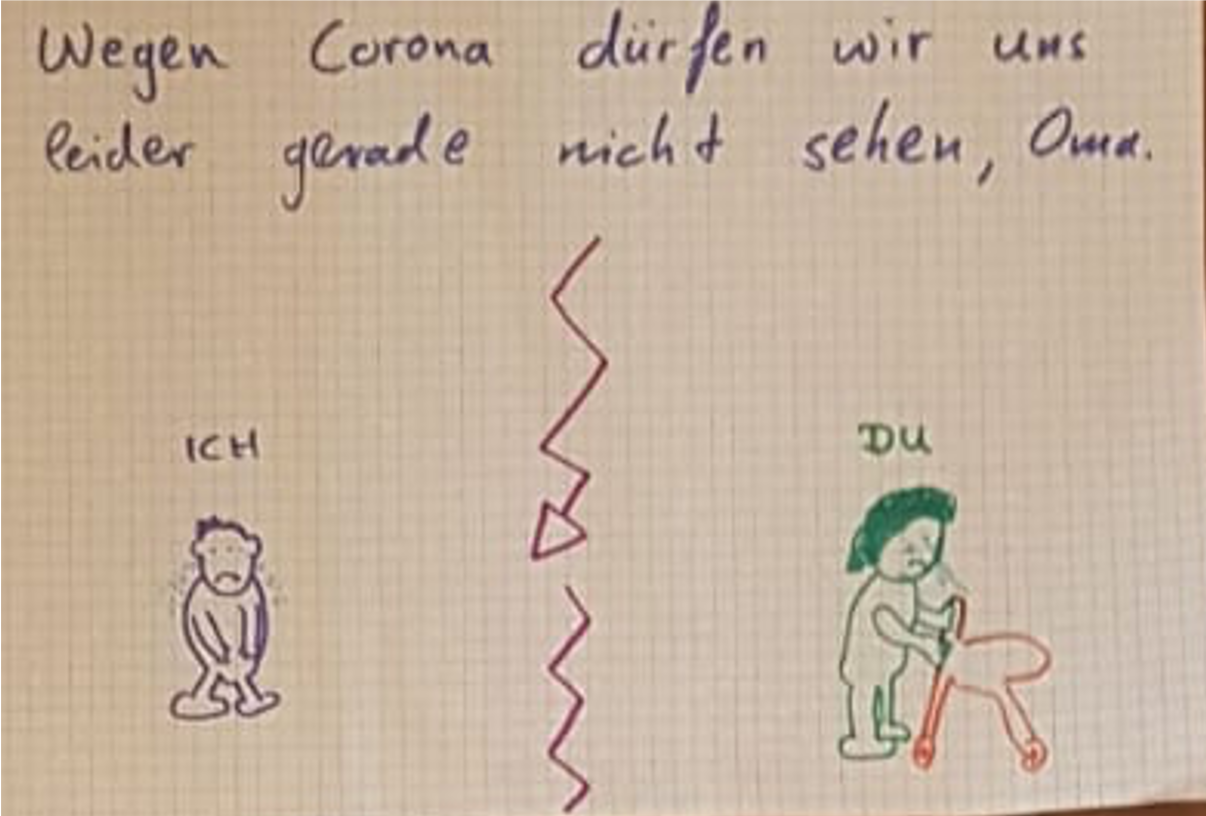 Wegen Corona dürfen wir uns
leider gerade nicht sehen, Oma.
ICH
DU